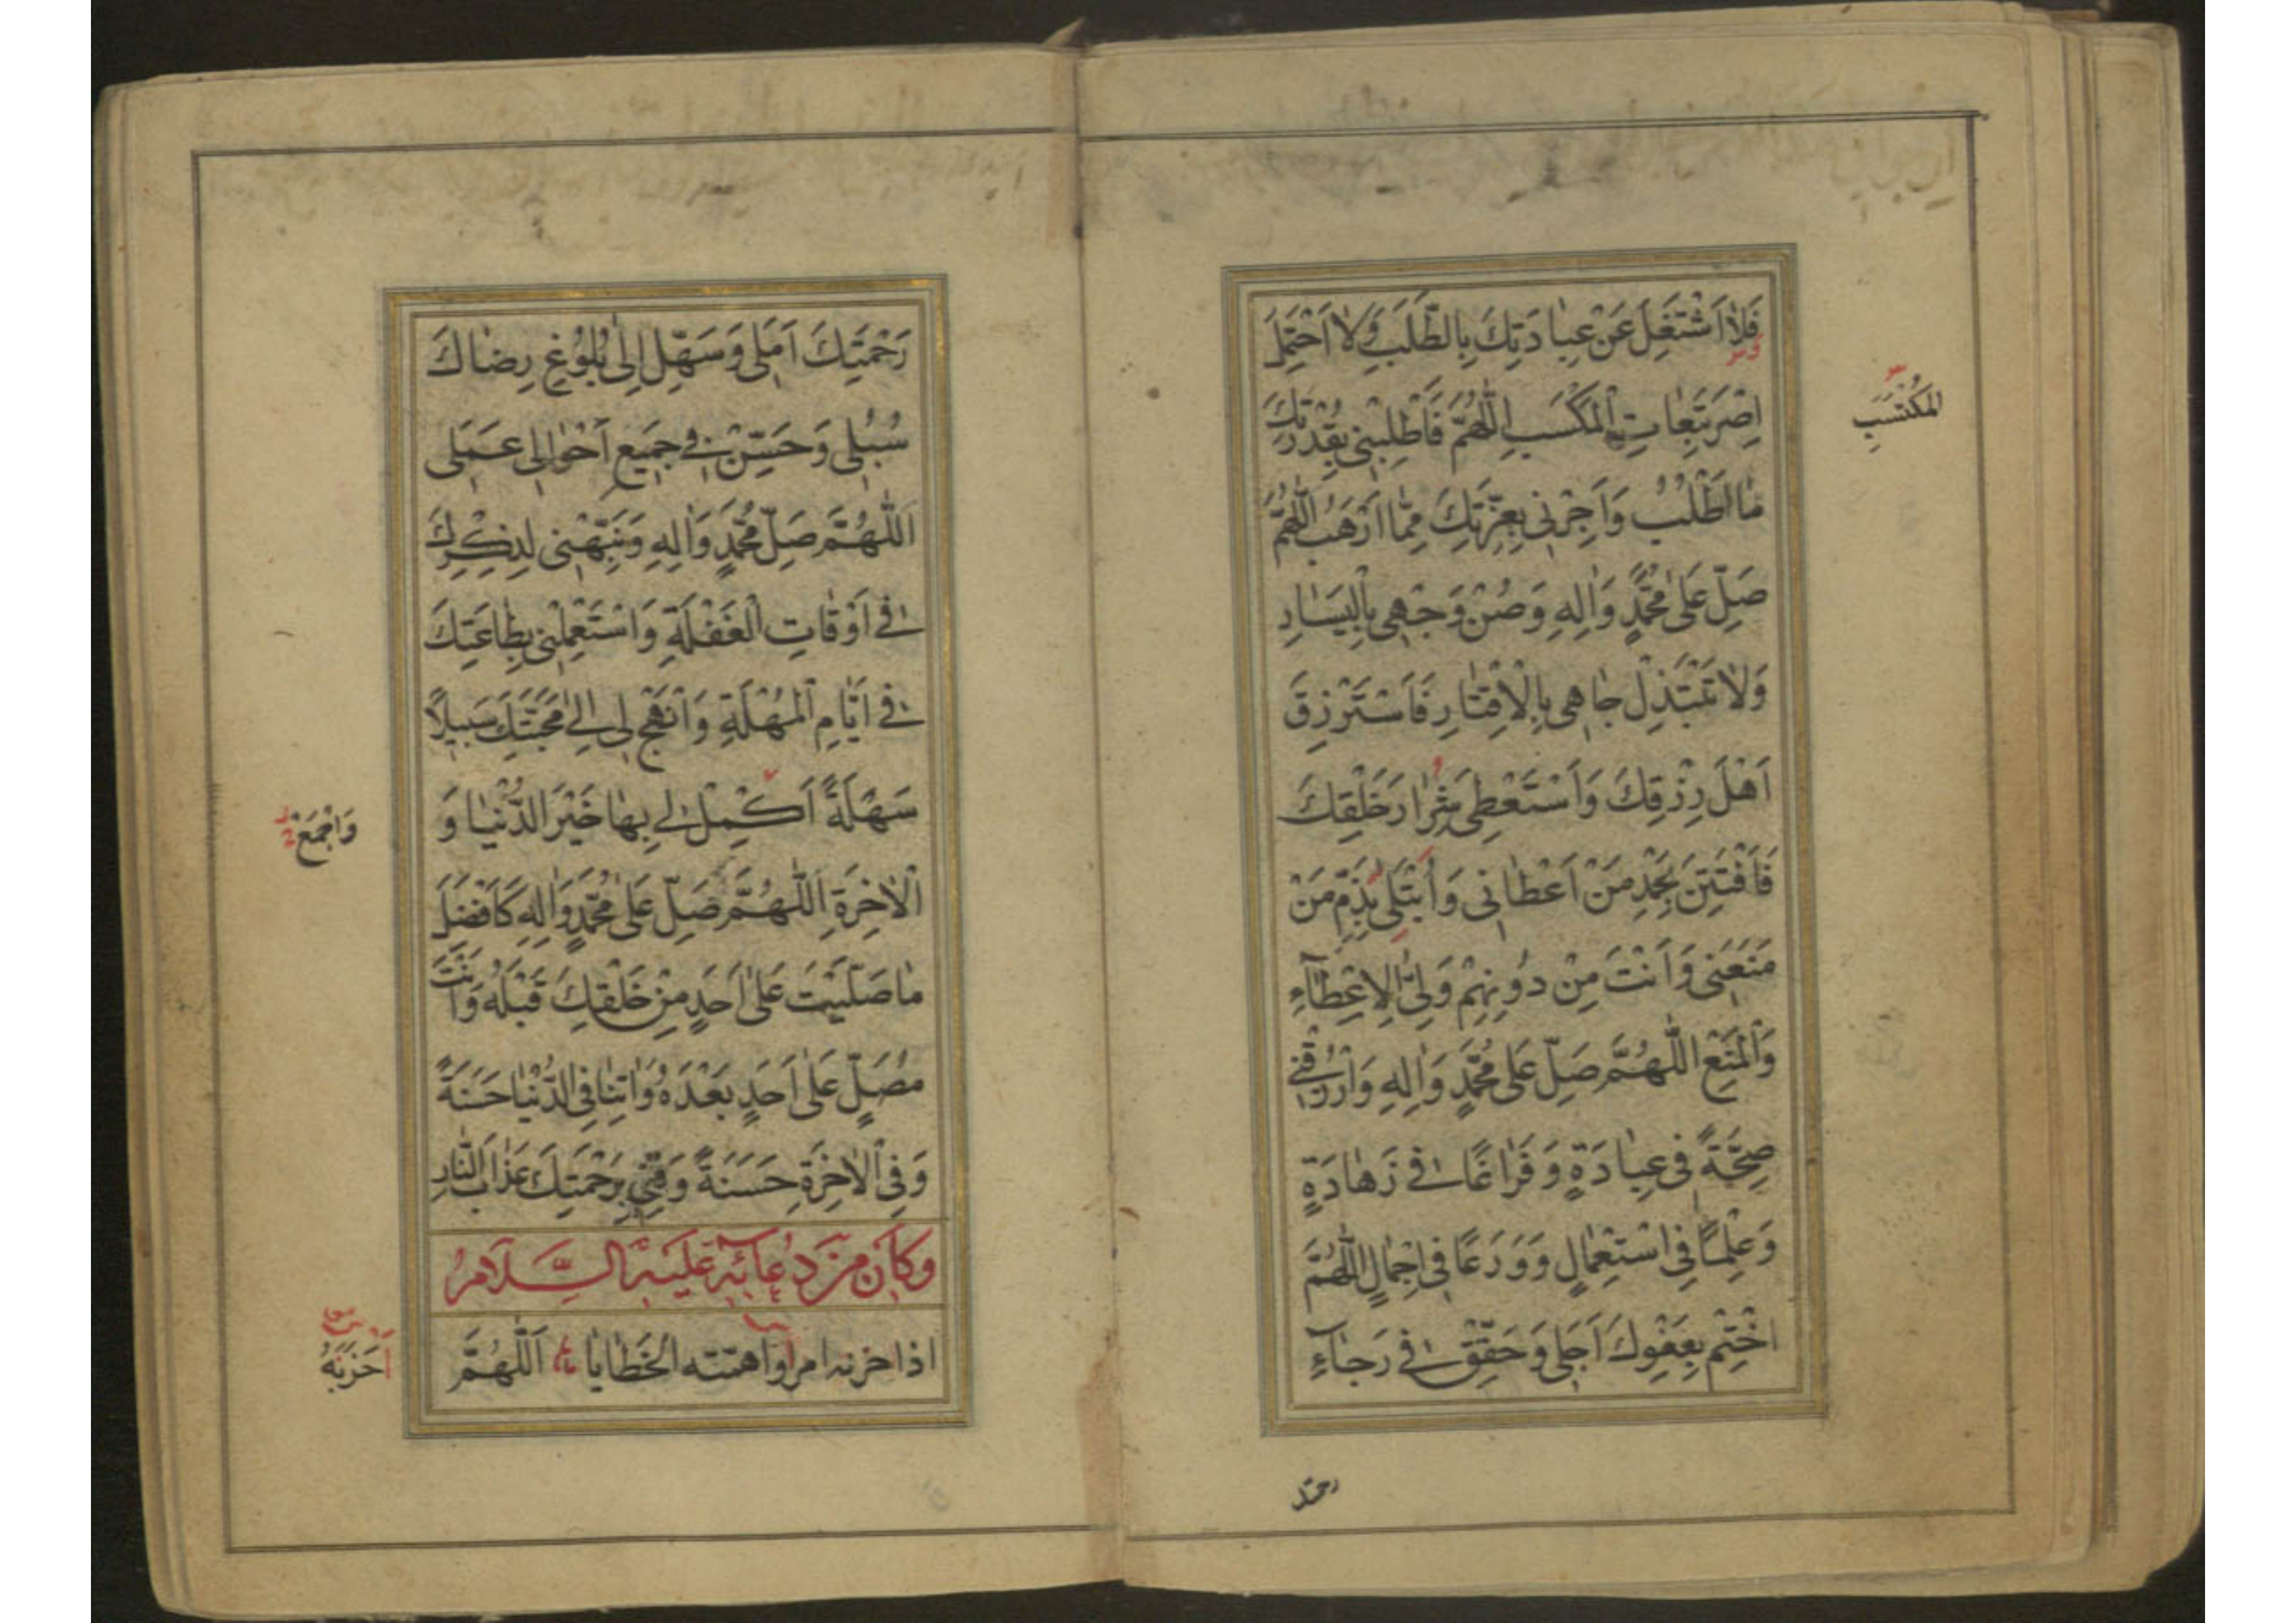 فَلاٰ اَشْتَغِلَ عَنْ عِبٰادَتِكَ بِالطَّلَبِ وَلاٰ اَحْتَمِلَ
اِصْرَ تَبِعٰاتِ الْمَكْسَبِ اَللّٰهُمَّ فَاَطْلِبْنى بِقُدْرَتِكَ
الْمُكْتَسَبِ
مٰا اَطْلُبُ وَاَجِرْنى بِعِزَّتِكَ مِمّٰا اَرْهَبُ اللّٰهُمَّ
صَلِّ عَلىٰ مُحَمَّدٍ وَاٰلِهِ وَصُنْ وَجْهى بِالْيَسٰارِ
وَلاٰ تَبْتَذِلْ جٰاهى بِالْاِقْتٰارِ فَاَسْتَرْزِقَ
اَهْلَ رِزْقِكَ وَاَسْتَعْطِىَ شِرٰارَ خَلْقِكَ
فَاَفْتَتِنَ بِحَمْدِ مَنْ اَعْطٰانى وَاُبْتَلىٰ بِذَمِّ مَنْ
مَنَعَنى وَاَنْتَ مِنْ دُونِهِمْ وَلِىُّ الْاِعْطٰآءِ
وَالْمَنْعِ اللّٰهُمَّ صَلِّ عَلىٰ مُحَمَّدٍ وَاٰلِهِ وَارْزُقْنى
صِحَّةً فى عِبٰادَةٍ وَفَرٰاغًا فى زَهٰادَةٍ
وَعِلْمًا فِى اسْتِعْمٰالٍ وَوَرَعًا فى اِجْمٰالٍ اللّٰهُمَّ
اخْتِمْ بِعَفْوِكَ اَجَلى وَحَقِّقْ فى رَجٰآءِ
رحمتك
رَحْمَتِكَ اَمَلى وَسَهِّلْ اِلىٰ بُلُوغِ رِضٰاكَ
سُبُلى وَحَسِّنْ فى جَميعِ اَحْوٰالى عَمَلى
اَللّٰهُمَّ صَلِّ مُحَمَّدٍ وَاٰلِهِ وَنَبِّهْنى لِذِكْرِكَ
فى اَوْقٰاتِ الْغَفْلَةِ وَاسْتَعْمِلْنى بِطٰاعَتِكَ
فى اَيّٰامِ الْمُهْلَةِ وَانْهَجْ لى اِلىٰ مَحَبَّتِكَ سَبيلاً
سَهْلَةً اَكْمِلْ لى بِهٰا خَيْرَ الدُّنْيٰا وَ
وَاجْمَعْ
الْاٰخِرَةِ اَللّٰهُمَّ صَلِّ عَلىٰ مُحَمَّدٍ وَاٰلِهِ كَاَفْضَلِ
مٰا صَلَّيْتَ عَلىٰ اَحَدٍ مِنْ خَلْقِكَ قَبْلَهُ وَاَنْتَ
مُصَلٍّ عَلىٰ اَحَدٍ بَعْدَهُ وَاٰتِنٰا فِى الدُّنْيٰا حَسَنَةً
وَفِى الْاٰخِرَةِ حَسَنَةً وَقِنى بِرَحْمَتِكَ عَذٰابَ النّٰارِ
وَكَانَ مِنْ دُعَائِهِ عَلَيْهِ السَّلَامُ
اذا حزنه امر واهمّته الخَطٰايٰا اَللّٰهُمَّ
اَحْزَنَهُ